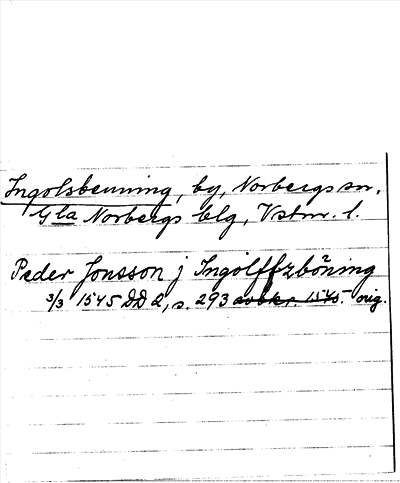 Ingolsbenning, by, Norbergs sn.
Gla Norbergs blg, Vstm. l.
Peder Jonsson j Ingolffzböning
3/3 1545 DD 2, s. 293 avskr. 1545. orig.